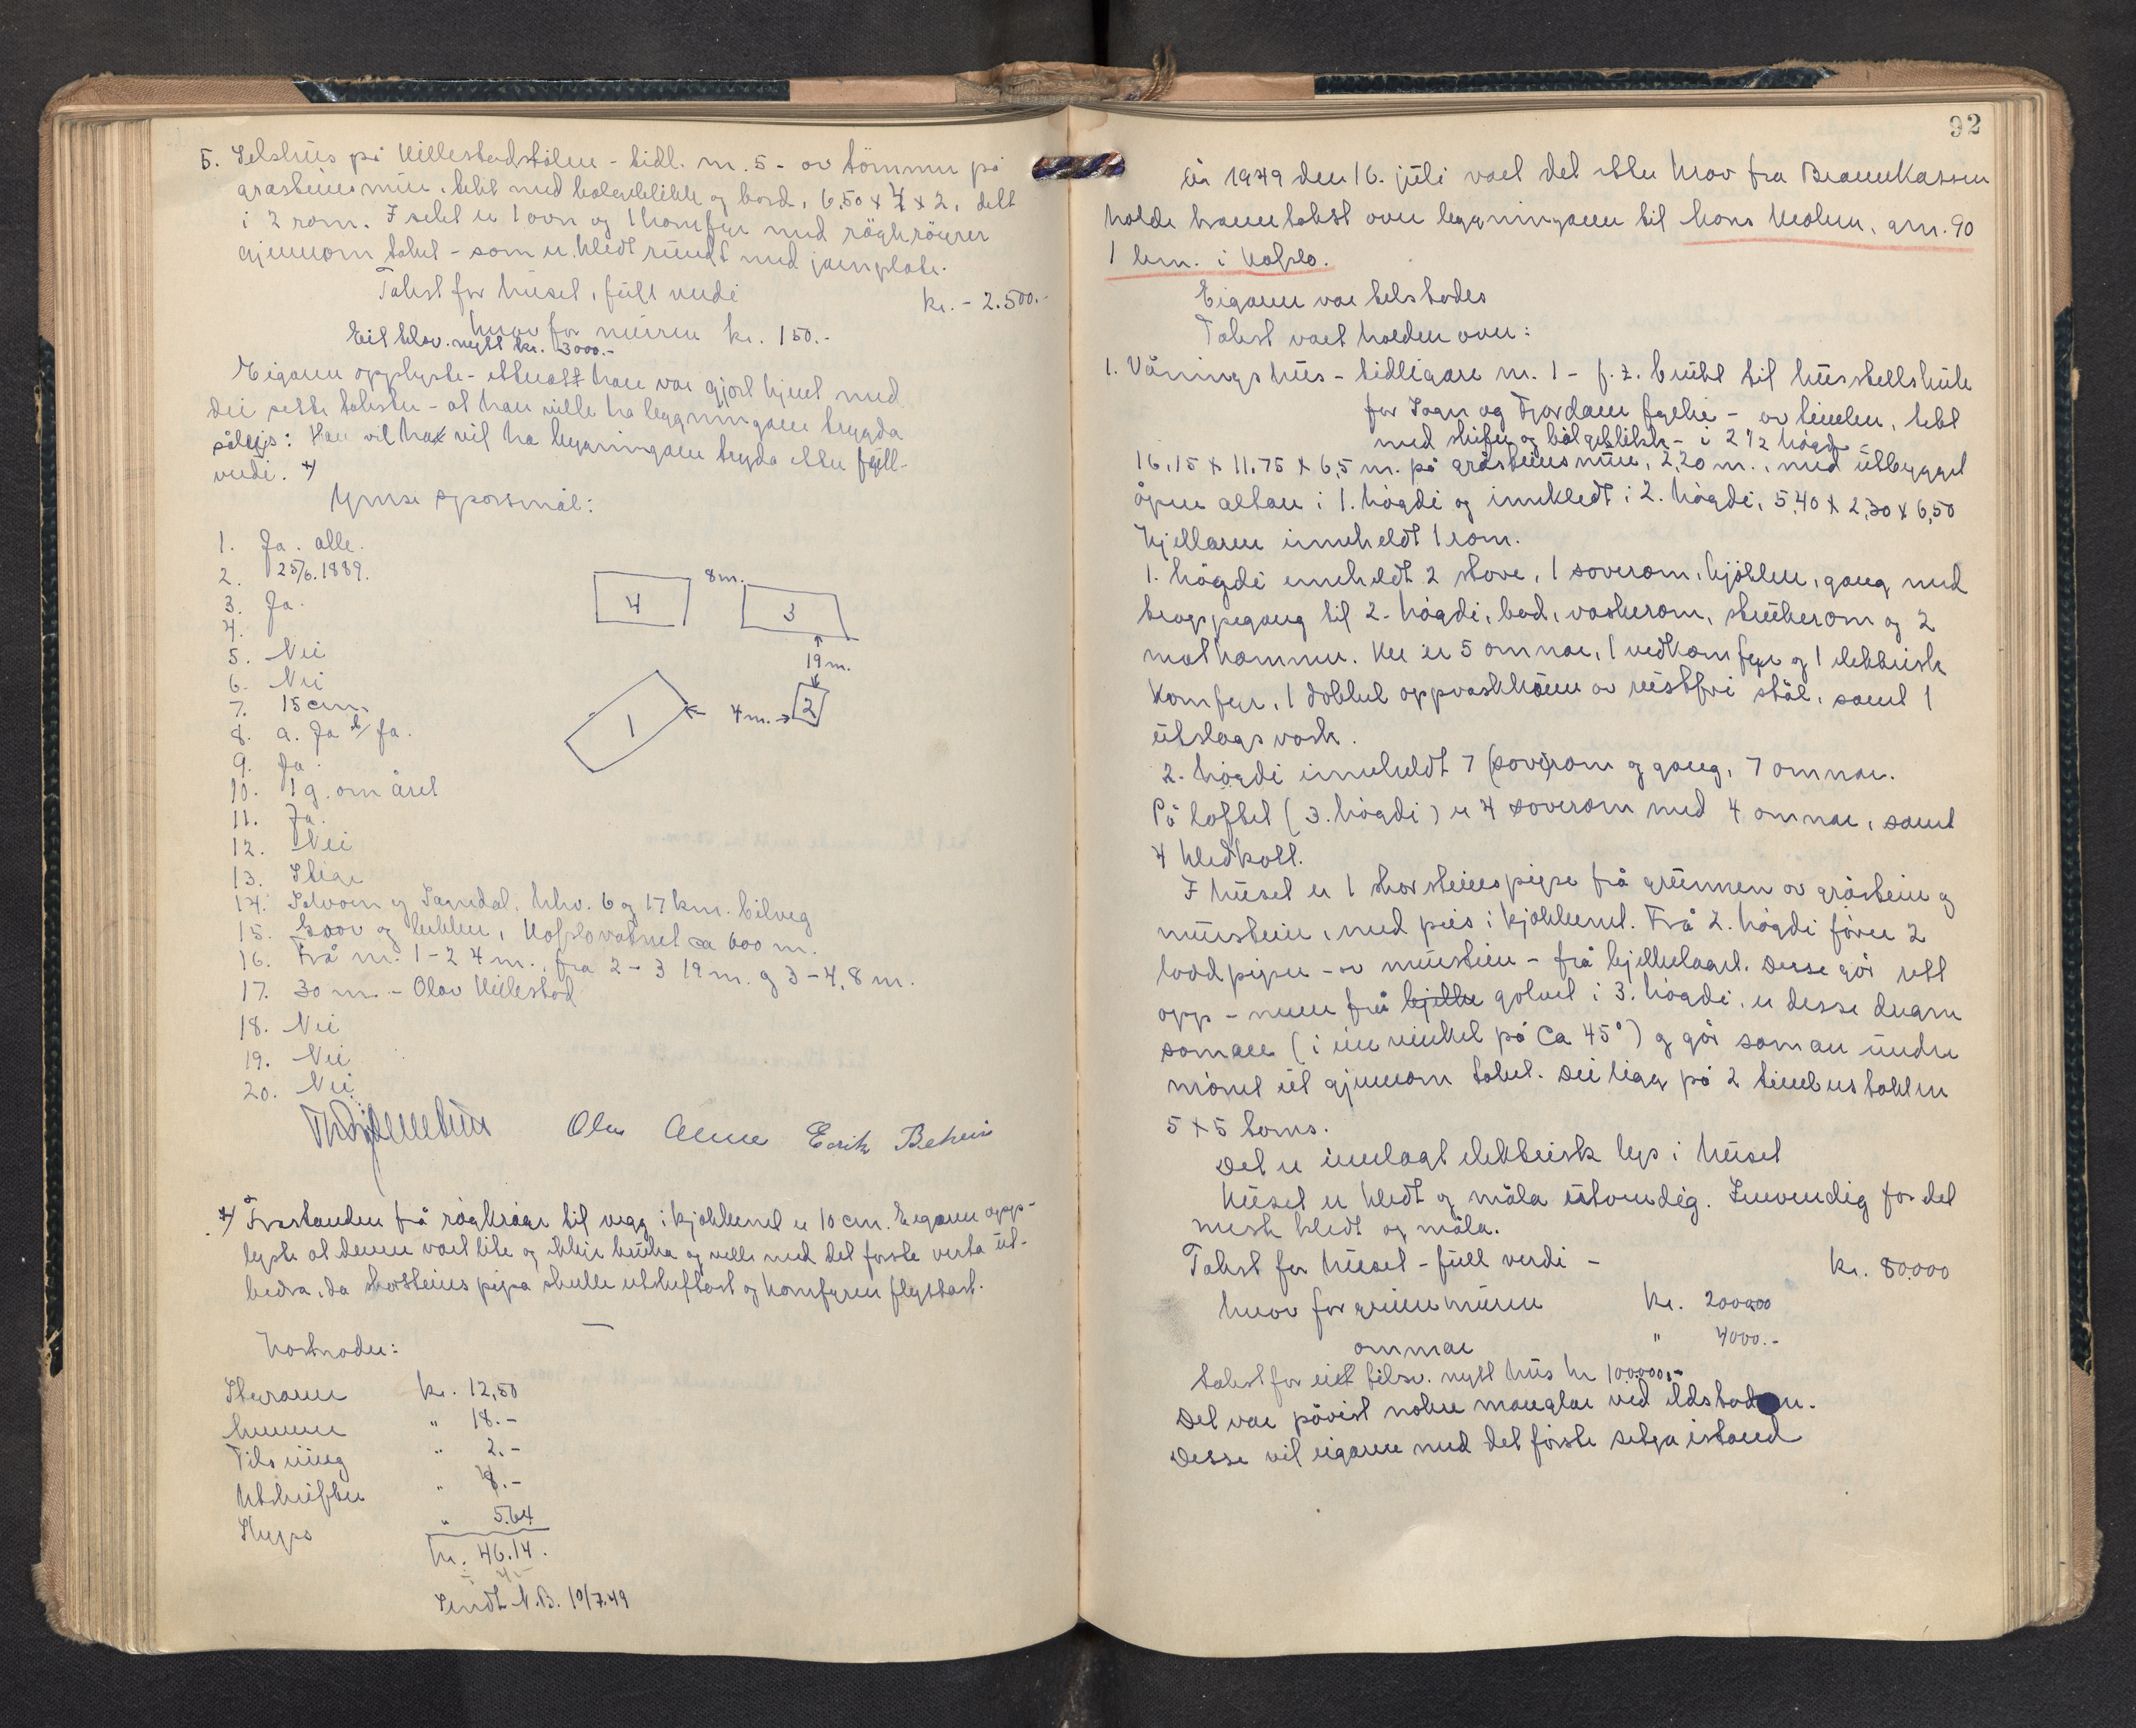 5. Selshus på Killestadstølen - tidl. nr. 5 - av tømmer på
gråsteinsmur, tekt med bølgeblikk og bord, 6,50 x 4 x 2, delt
i 2 rom. I selet er 1 ovn og 1 komfyr med røykrøyrer
gjennom taket - som er kledt rundt med jarnplate.
Takst for huset, full verdi kr. - 2.500.-
hvorav for muren kr. 150.-
Eit tilsv. nytt kr. 3000.-
Eigaren opplyste - etter att han var gjort kjent med
dei sette takster - at han ville ha bygningane trygda
såleis: Han vil ha bygningane trygda etter full-
verdi. x)
Ymse spørsmål:
1. Ja. alle.
2. 25/6.1889.
3. Ja.
4.
5. Nei
6. Nei
7. 15 cm
8. a. Ja b/ Ja.
9. Ja.
10. 1 g. om året
11. Ja.
12. Nei
13. Stige
14. Selvam og Sogndal. hhv. 6 og 17 km. bilveg
15. Elv og bekker, Kaflovatnet ca 600 m.
16. Frå nr. 1-2 4 m., fra 2-3 19 m. og 3-4, 8 m.
17. 30 m. - Olav Killestad
18. Nei
19. Nei
20. Nei
4
8 m.
3
19 m.
1
4 m.
2
Erik
x) Avstanden frå røykrøyr til vegg i kjøkkenet er 10 cm. Eigaren opp-
lyste at denne vart lite og ikkje bruka og ville med det første verta ut-
bedra, da skorsteinspipa skulle utskiftast og komfyren flyttast.
Kostnader:
Styraren kr. 12,50
" 18.-
" 2.-
Utskrifter " 8.-
Skyss " 5.64
kr. 46.14.
Sendt N.B. 10/7.49
92
År 1949 den 16. juli vart det etter krav fra Brannkassen
halde branntakst over bygningane til Hans Kvålen, gnr. 90
1 bnr. i Kaflo.
Eigaren var tilstades
Takst vart halden over:
1. Våningshus - tidligare nr. 1 - f. t. brukt til husstellskule
for Sogn og Fjordane fylke - av timber, tekt
med skifer og bølgeblikk - i 2 1/2 høgd
16,15 x 11.75 x 6,5 m. på gråsteinsmur, 2,20 m., med utbygget
åpen altan i 1. høgdi og innkledt i 2. høgdi, 5,40 x 2,30 x 6,50
Kjellaren inneheldt 1 rom.
1. høgdi inneheldt 2 stove, 1 soverom, kjøkken, gang med
trappegang til 2. høgdi, bad, vaskerom, strykerom og 2
matkammer. Her er 5 omnar, 1 vedkomfyr og 1 elektrisk
komfyr, 1 dobbel oppvaskkum av rustfri stål, samt 1
utslagsvask.
2. høgdi inneheldt 7 soverom og gang, 7 omnar.
På loftet (3. høgdi) er 4 soverom med 4 omnar, samt
4 kledkott.
I huset er 1 skorsteinspipe frå grunnen av gråstein og
murstein, med peis i kjøkkenet. Frå 2. høgdi fører 2
loddpiper - av murstein - frå bjelkelaget. Desse går rett
opp - men frå bjelke golvet i 3. høgdi, er desse dregne
saman (i ein vinkel på ca 45°) og går saman under
mønet ut gjennom taket. Dei ligg på 2 timberstokker
5 x 5 toms.
Det er innlagt elektrisk lys i huset
Huset er kledt og måla utvendig. Innvendig for det
mesta kledt og måla.
Takst for huset - full verdi - kr. 80.000
hvorav for grunnmuren kr. 2000.00
omnar " 4000.-
takst for eit tilsv. nytt hus kr 100.000,-
Det var påvist nokre manglar ved eldstaden.
Desse vil eigaren med det første setja istand